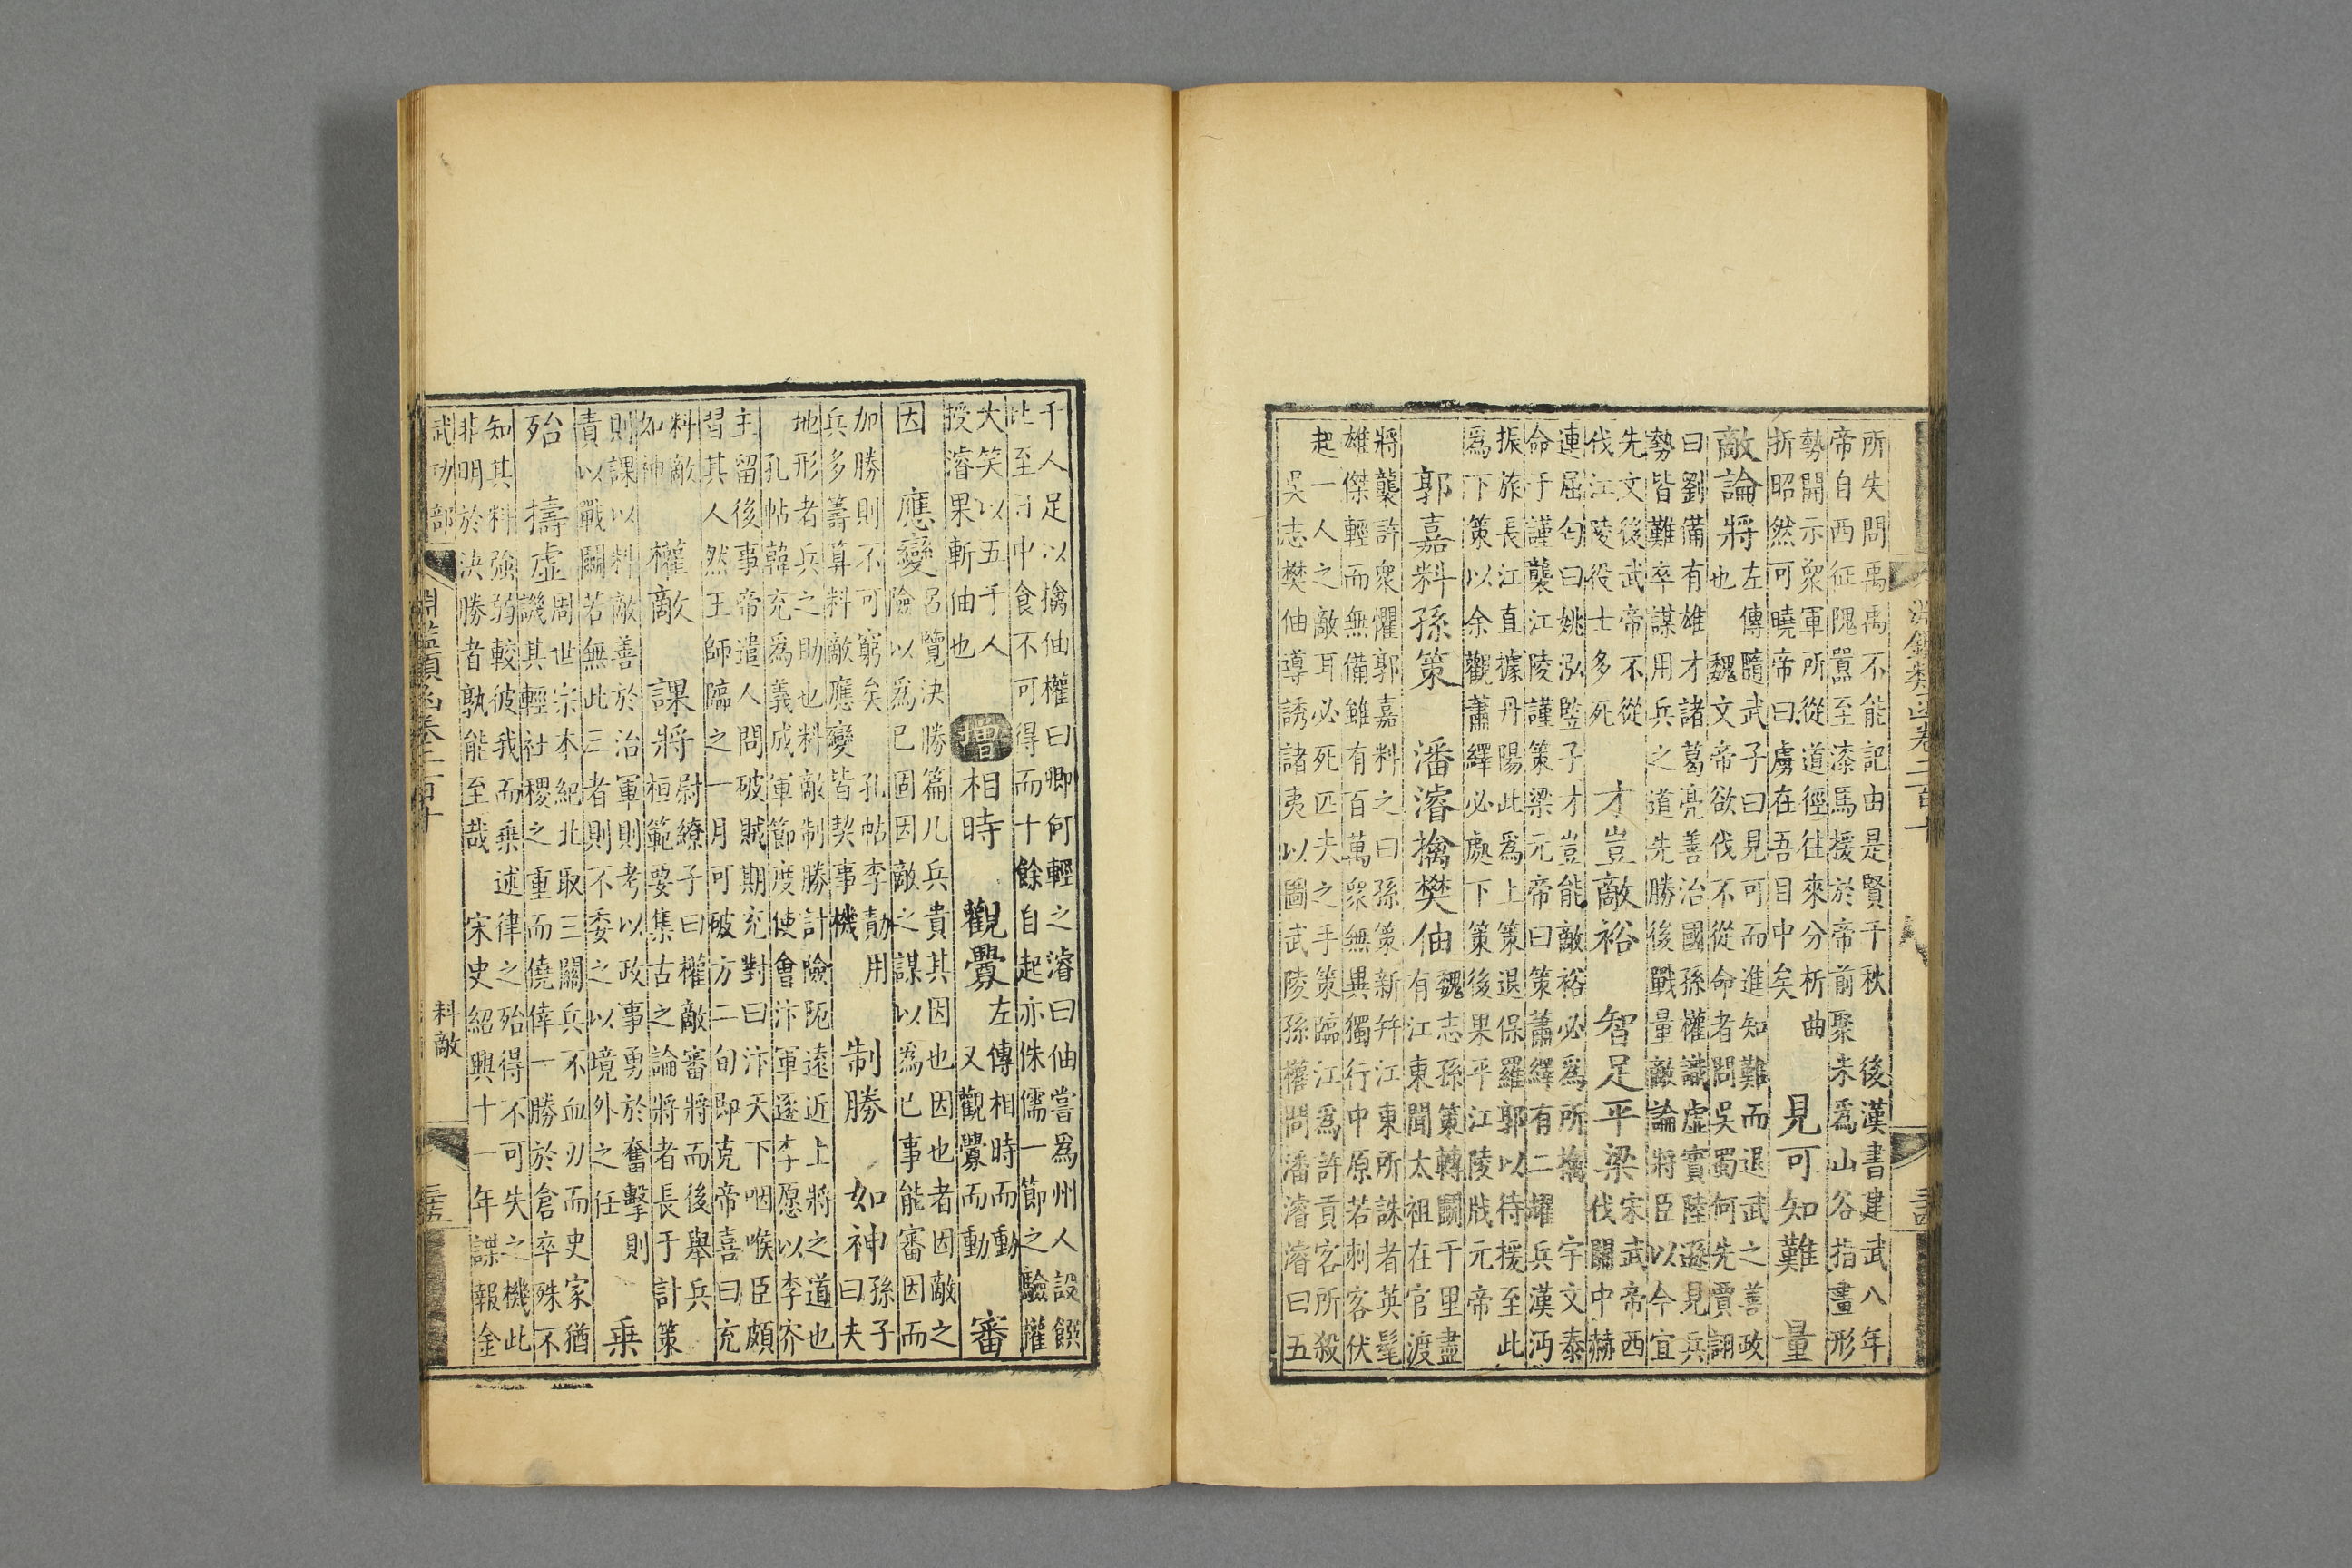 淵鑑類函卷二百十
所失問禹禹不能記由是賢千秋　後漢書建武八年
帝自西征隗囂至漆馬援於帝前聚米為山谷指畫形
勢開示衆軍所從道徑往來分析曲
折昭然可曉帝曰虜在吾目中矣
見可知難　量
敵論將
左傳隨武子曰見可而進知難而退武之善政
也　魏文帝欲伐不從命者問吳蜀何先賈詡
曰劉備有雄才諸葛亮善治國孫權識虛實陸遜見兵
勢皆難卒謀用兵之道先勝後戰量敵論將臣以今宜
先文後武帝不從
伐江陵役士多死
才豈敵裕　智足平梁
宋武帝西
伐關中赫
連屈匃曰姚泓監子才豈能敵裕必為所擒　宇文泰
命于謹襲江陵謹策梁元帝曰策蕭繹有二耀兵漢沔
振旅長江直據丹陽此為上策退保羅郭以待援至此
為下策以余觀蕭繹必處下策後果平江陵戕元帝
郭嘉料孫策　潘濬擒樊伷
魏志孫策轉鬭千里盡
有江東聞太祖在官渡
將襲許衆懼郭嘉料之曰孫策新幷江東所誅者英髦
雄傑輕而無備雖有百萬衆無異獨行中原若刺客伏
起一人之敵耳必死匹夫之手策臨江為許貢客所殺
吳志樊伷導誘諸夷以圖武陵孫權問潘濬濬曰五
千人足以擒伷權曰卿何輕之濬曰伷嘗為州人設饌
比至日中食不可得而十餘自起亦侏儒一節之驗權
大笑以五千人
授濬果斬伷也
增　相時　觀釁
左傳相時而動
又觀釁而動
審
因　應變
呂覽決勝篇凡兵貴其因也因也者因敵之
險以為己固因敵之謀以為己事能審因而
加勝則不可窮矣　孔帖李勣用
兵多籌算料敵應變皆契事機
制勝　如神
孫子
曰夫
地形者兵之助也料敵制勝計險阨遠近上將之道也
孔帖韓充為義成軍節度使會汴軍逐李愿以李㝏
主留後事帝遣人問破賊期充對曰汴天下咽喉臣頗
習其人然王師臨之一月可破方二旬即克帝喜曰充
料敵
如神
權敵　課將
尉繚子曰權敵審將而後舉兵
桓範要集古之論將者長于計策
則課以料敵善於治軍則考以政事勇於奮擊則
責以戰鬭若無此三者則不委之以境外之任
乗
殆　擣虛
周世宗本紀北取三關兵不血刃而史家猶
譏其輕社稷之重而僥倖一勝於倉卒殊不
知其料强弱較彼我而乗述律之殆得不可失之機此
非明於決勝者孰能至哉　宋史紹興十一年諜報金
武功部
淵鑑類函卷二百十
料敵